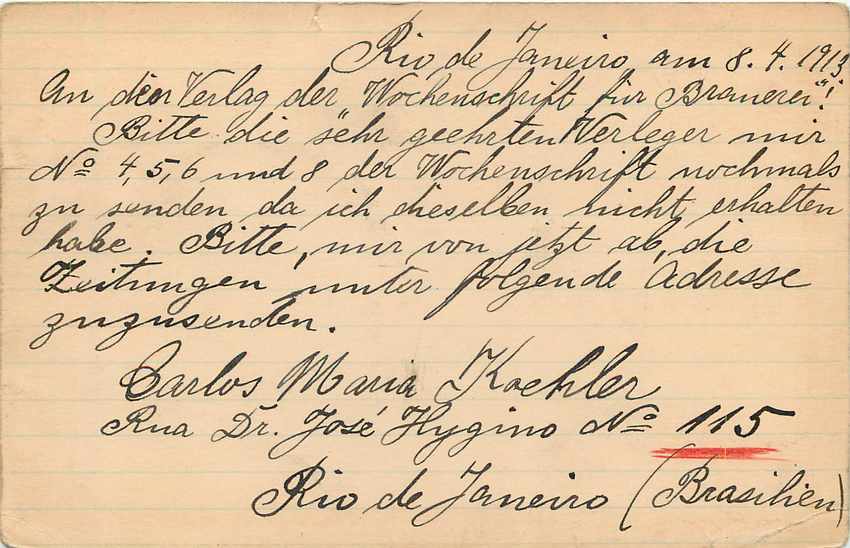 Rio de Janeiro, am 8. 4. 1913.
An den Verlag der „Wochenschrift für Brauerei“!
Bitte die sehr geehrten Verleger mir
No 4, 5, 6 und 8 der Wochenschrift nochmals
zu senden da ich dieselben nicht erhalten
habe. Bitte, mir von jetzt ab, die
Zeitungen, unter folgende Adresse
zuzusenden.
Carlos Maria Koehler
Rua Dr. José Hygino No 115
Rio de Janeiro (Brasilien)